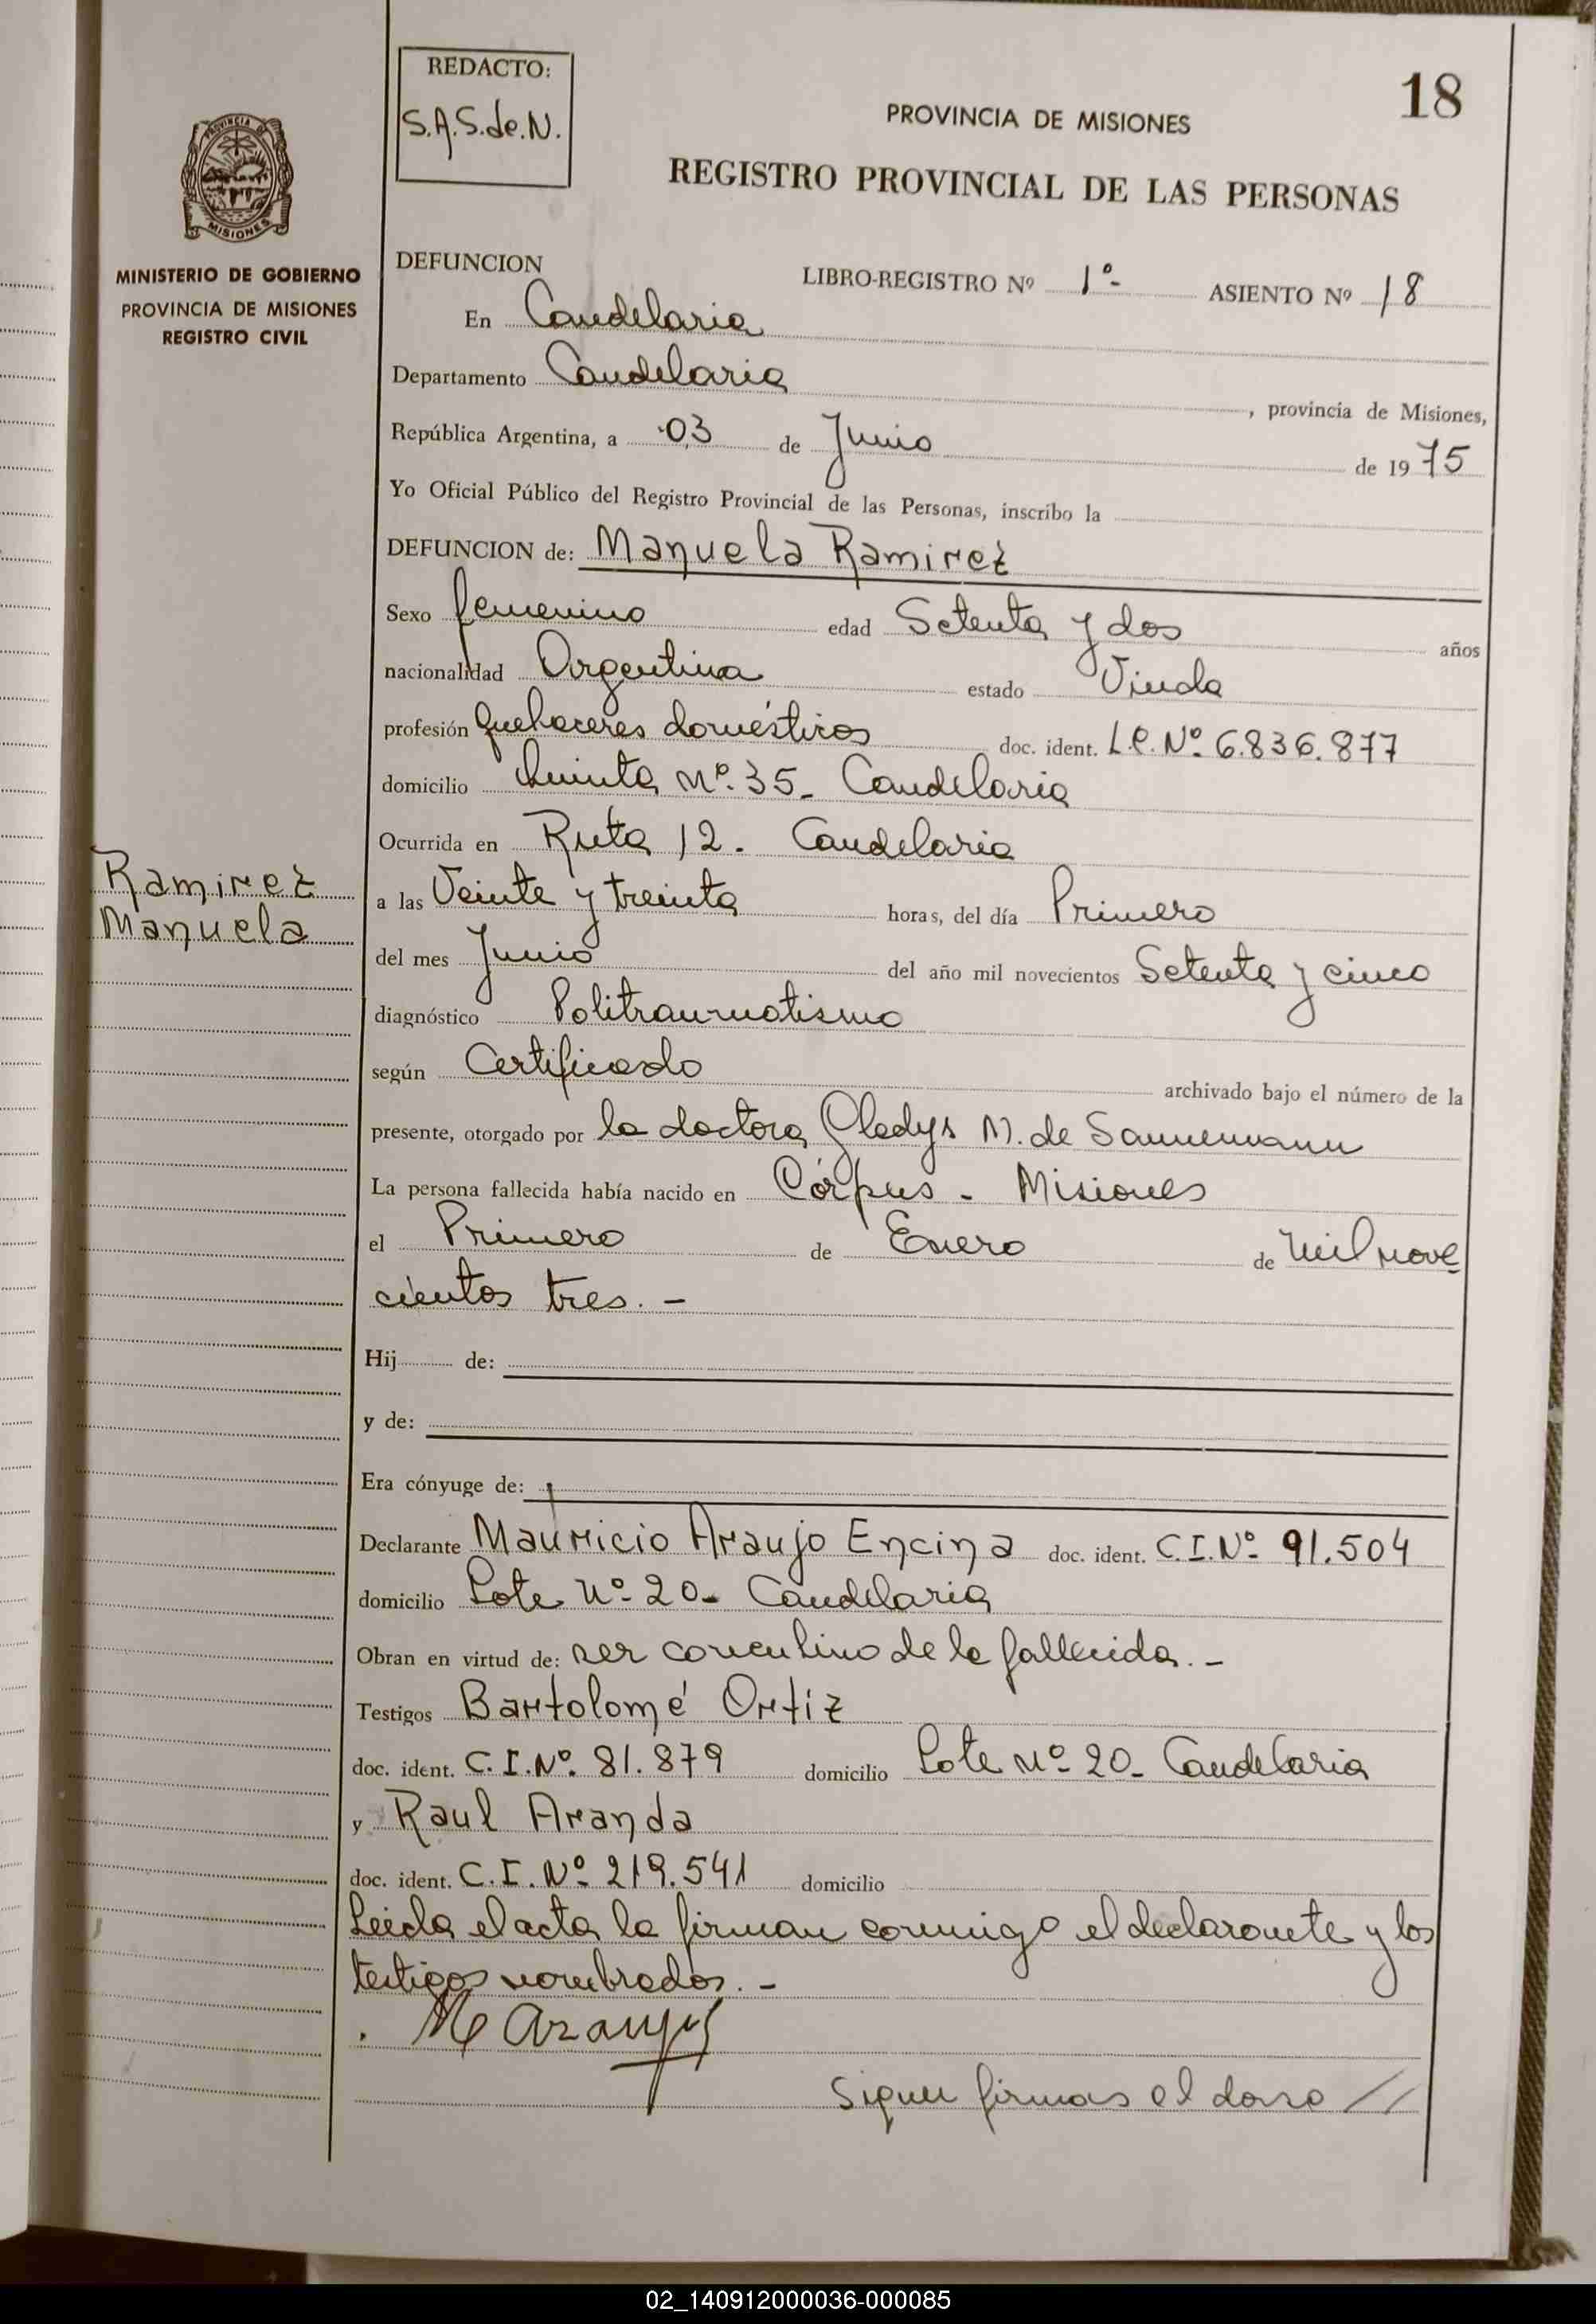 REDACTO:
S.A.S.de.N.
18
PROVINCIA DE MISIONES
REGISTRO PROVINCIAL DE LAS PERSONAS
PROVINCIA DE
MISIONES
MINISTERIO DE GOBIERNO
PROVINCIA DE MISIONES
REGISTRO CIVIL
DEFUNCION LIBRO-REGISTRO Nº 1º- ASIENTO Nº 18
En Candelaria
Departamento Candelaria , provincia de Misiones,
República Argentina, a 03 de Junio de 1975
Yo Oficial Público del Registro Provincial de las Personas, inscribo la
DEFUNCION de: Manuela Ramirez
Sexo femenino edad Setenta y dos años
nacionalidad Argentina estado Viuda
profesión Quehaceres domésticos doc. ident. L.C. Nº 6.836.877
domicilio Quinta Nº 35- Candelaria
Ocurrida en Ruta 12. Candelaria
Ramirez
Manuela
a las Veinte y treinta horas, del día Primero
del mes Junio del año mil novecientos Setenta y cinco
diagnóstico Politraumatismo
según Certificado archivado bajo el número de la
presente, otorgado por la doctora Gladys M. de Sannemann
La persona fallecida había nacido en Córpus - Misiones
el Primero de Enero de mil nove
cientos tres. -
Hij de:
y de:
Era cónyuge de:
Declarante Mauricio Araujo Encina doc. ident. C.I.Nº 91.504
domicilio Lote Nº 20- Candelaria
Obran en virtud de: ser concubino de la fallecida. -
Testigos Bartolomé Ortiz
doc. ident. C.I.Nº 81.879 domicilio Lote Nº 20- Candelaria
y Raul Aranda
doc. ident. C.I.Nº 219.541 domicilio
Leida el acta la firman conmigo el declarante y los
testigos nombrados. -
M Araujo
Siguen firmas al dorso //
02_140912000036-000085